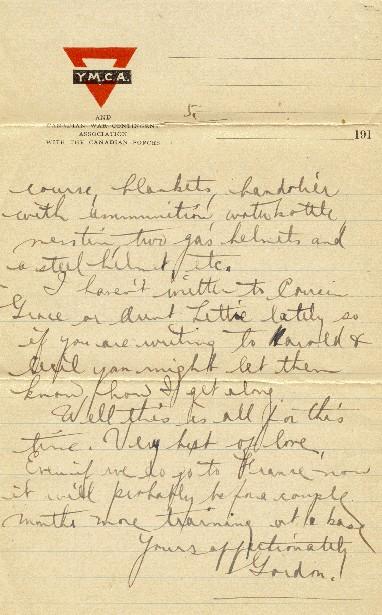 Y.M.C.A.
AND
CANADIAN WAR CONTINGENT
ASSOCIATION
WITH THE CANADIAN FORCES
5.
191
course, blankets, bandolier
with ammunition waterbottle,
messtin, two gas helmets and
a steel helmet, etc.
I haven't written to Cousin
Grace or Aunt Lettie lately so
if you are writing to Harold &
you might let them
know how I get along.
Well this is all for this
time. Very best of love,
Even if we do go to France now
it will probably be for a couple
months more training at a base
Yours affectionately
Gordon.